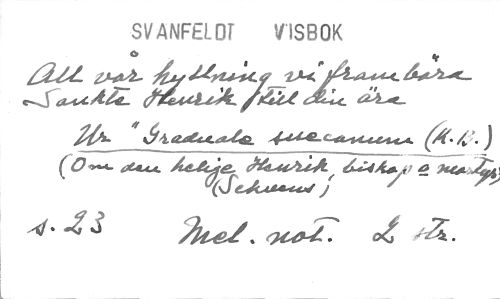 SVANFELDT VISBOK
All vår hyllning vi frambära
Sankte Henrik, till din ära
Ur "Graduale suecanum (K.B.)
(Om den helige Henrik, biskop o martyr)
(Sekvens)
s. 23 Mel. not. 2 str.